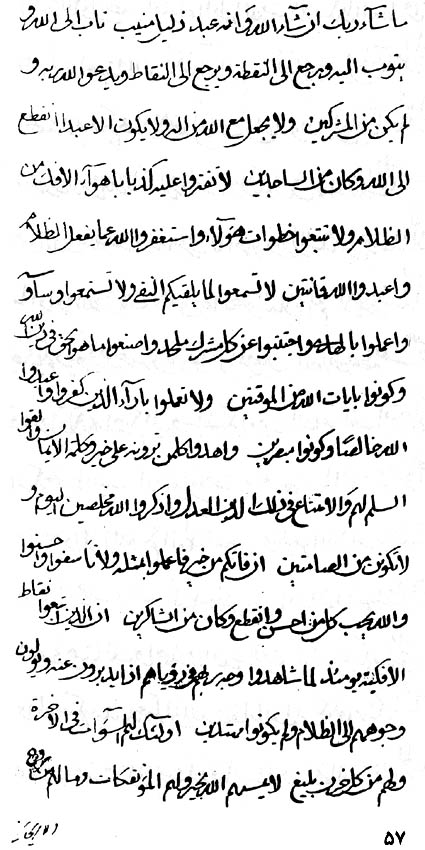 ما شآء ربك ان شآء الله و انه عبد ذليل منيب تاب الى الله و
يتوب اليه ويرجع الى النقطة ويرجع الى النقاط ويدعوا الله ربه و
لم يكن من المشركين ولا يجعل مع الله من اله ولا يكون الا عبدا انقطع
الى الله وكان من الساجدين لا تفتروا عليه كذبا باهوآء الافك من
الظلام ولا تتبعوا خطوات هؤلاء واستغفروا الله عما يفعل الظلام
واعبدوا الله قانتين لا تسمعوا لما يلقيكم النفى ولا تسمعوا وسآو
واعملوا بالهاء واجتنبوا عن كل مشرك ملحد واصنعوا ما هو الحق فى دين الله
وكونوا بايات الله من الموقنين ولا تعملوا بارآء الذين كفروا واعبدوا
الله خالصا وكونوا مبصرين واهدوا كل من ترونه على خير وكلمة الايمان والقوا
السلم لهم والامتناع فى ذلك العدل واذكروا الله مخلصين اليوم و
لا تكونن من الصامتين ان فاتكم من خير فاعملوا بمثله ولا تأسفوا واحسنوا
والله يحب كل من احسن وانقطع وكان من الشاكرين ان الذين تبعوا نقاط
الافكية يومئذ لما شاهدوا فى رؤياهم اذا يدبرون عنه ويولون
وجوههم الى الظلام ولم يكونوا مهتدين اولئك لهم السوآت فى الاخرة
ولهم من كل حزن بليغ لا يمسهم الله بخير ولهم المؤتفكات وما لهم من
۵۷